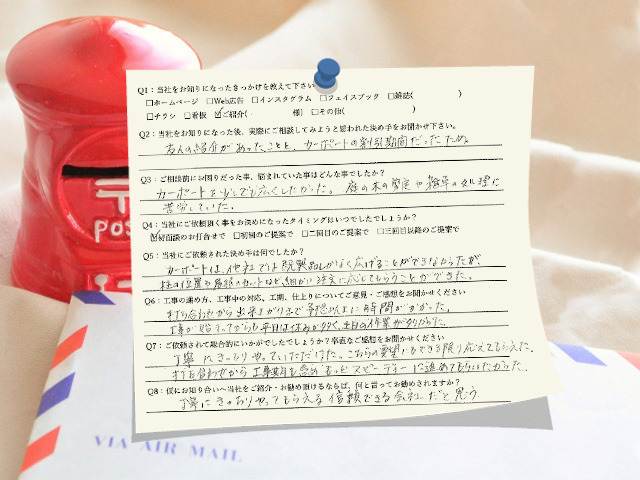 Q1：当社をお知りになったきっかけを教えて下さい
□ホームページ □Web広告 □インスタグラム □フェイスブック □雑誌( )
□チラシ □看板 ☑ご紹介( 様) □その他( )
Q2：当社をお知りになった後、実際にご相談してみようと思われた決め手をお聞かせ下さい。
友人の紹介があったことと、カーポートの割引期間だったため。
Q3：ご相談前にお困りだった事、悩まれていた事はどんな事でしたか？
カーポートを少しでも広くしたかった。庭の木の剪定や雑草の処理に
苦労していた。
Q4：当社にご依頼頂く事をお決めになったタイミングはいつでしたでしょうか？
☑初面談のお打合せで □初回のご提案で □二回目のご提案で □三回目以降のご提案で
Q5：当社にご依頼された決め手は何でしたか？
カーポートは、他社では既製品しかなく広げることができなかったが、
柱の位置や屋根のカットなど、細かい注文に応じてもらうことができた。
Q6：工事の進め方、工事中の対応、工期、仕上りについてご意見・ご感想をお聞かせください
打ち合わせから出来上がりまで予想以上に時間がかかった。
工事が始まってからも平日は休みが多く、土日の作業が多かった。
Q7：ご依頼されて総合的にいかがでしたでしょうか？率直なご感想をお聞かせください
丁寧にきっちりやっていただけた。こちらの要望にもできる限り応えてもらえた。
打ち合わせから工事期間も含めもっとスピーディーに進めてもらいたかった。
Q8：仮にお知り合いへ当社をご紹介・お勧め頂けるならば、何と言ってお勧めされますか？
丁寧にきっちりやってもらえる信頼できる会社だと思う
POS
VIA AIR MAIL